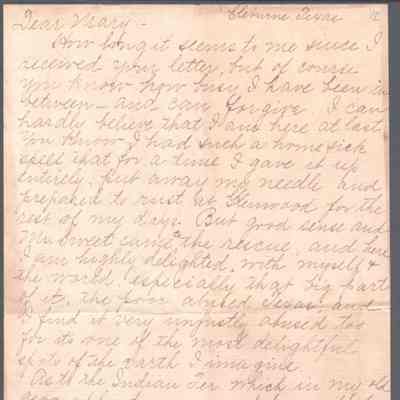 Cleburne Texas
Dear Mary -
How long it seems to me since I
received your letter, but of course
you know how busy I have been in
between - and can forgive. I can
hardly believe that I am here at last.
You know I had such a homesick
spell that for a time I gave it up
entirely. Put away my needle and
prepared to rust at Glenwood for the
rest of my days. But good sense and
Mr. Sweet came to the rescue, and here
I am highly delighted with myself &
the world, especially that big part
of it, the poor abused Texas, and
I find it very unjustly abused too
for its one of the most delightful
spots of the earth I imagine.
As to the Indian Ter which in my old